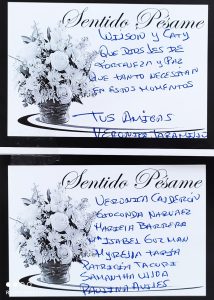 Sentido Pésame
WILSON Y CATY
QUE DIOS LES DE
FORTALEZA Y PAZ
QUE TANTO NECESITAN
EN ESTOS MOMENTOS
TUS AMIGAS
VERONICA JARAMILLO
Sentido Pésame
VERONICA CALDERÓN
GIOCONDA NARVAEZ
MARIELA BARRERA
Mª ISABEL GUZMAN
MYREYA TAPIA
PATRICIA TACURI
SAMANTHA UJIDA
PAULINA AVILES